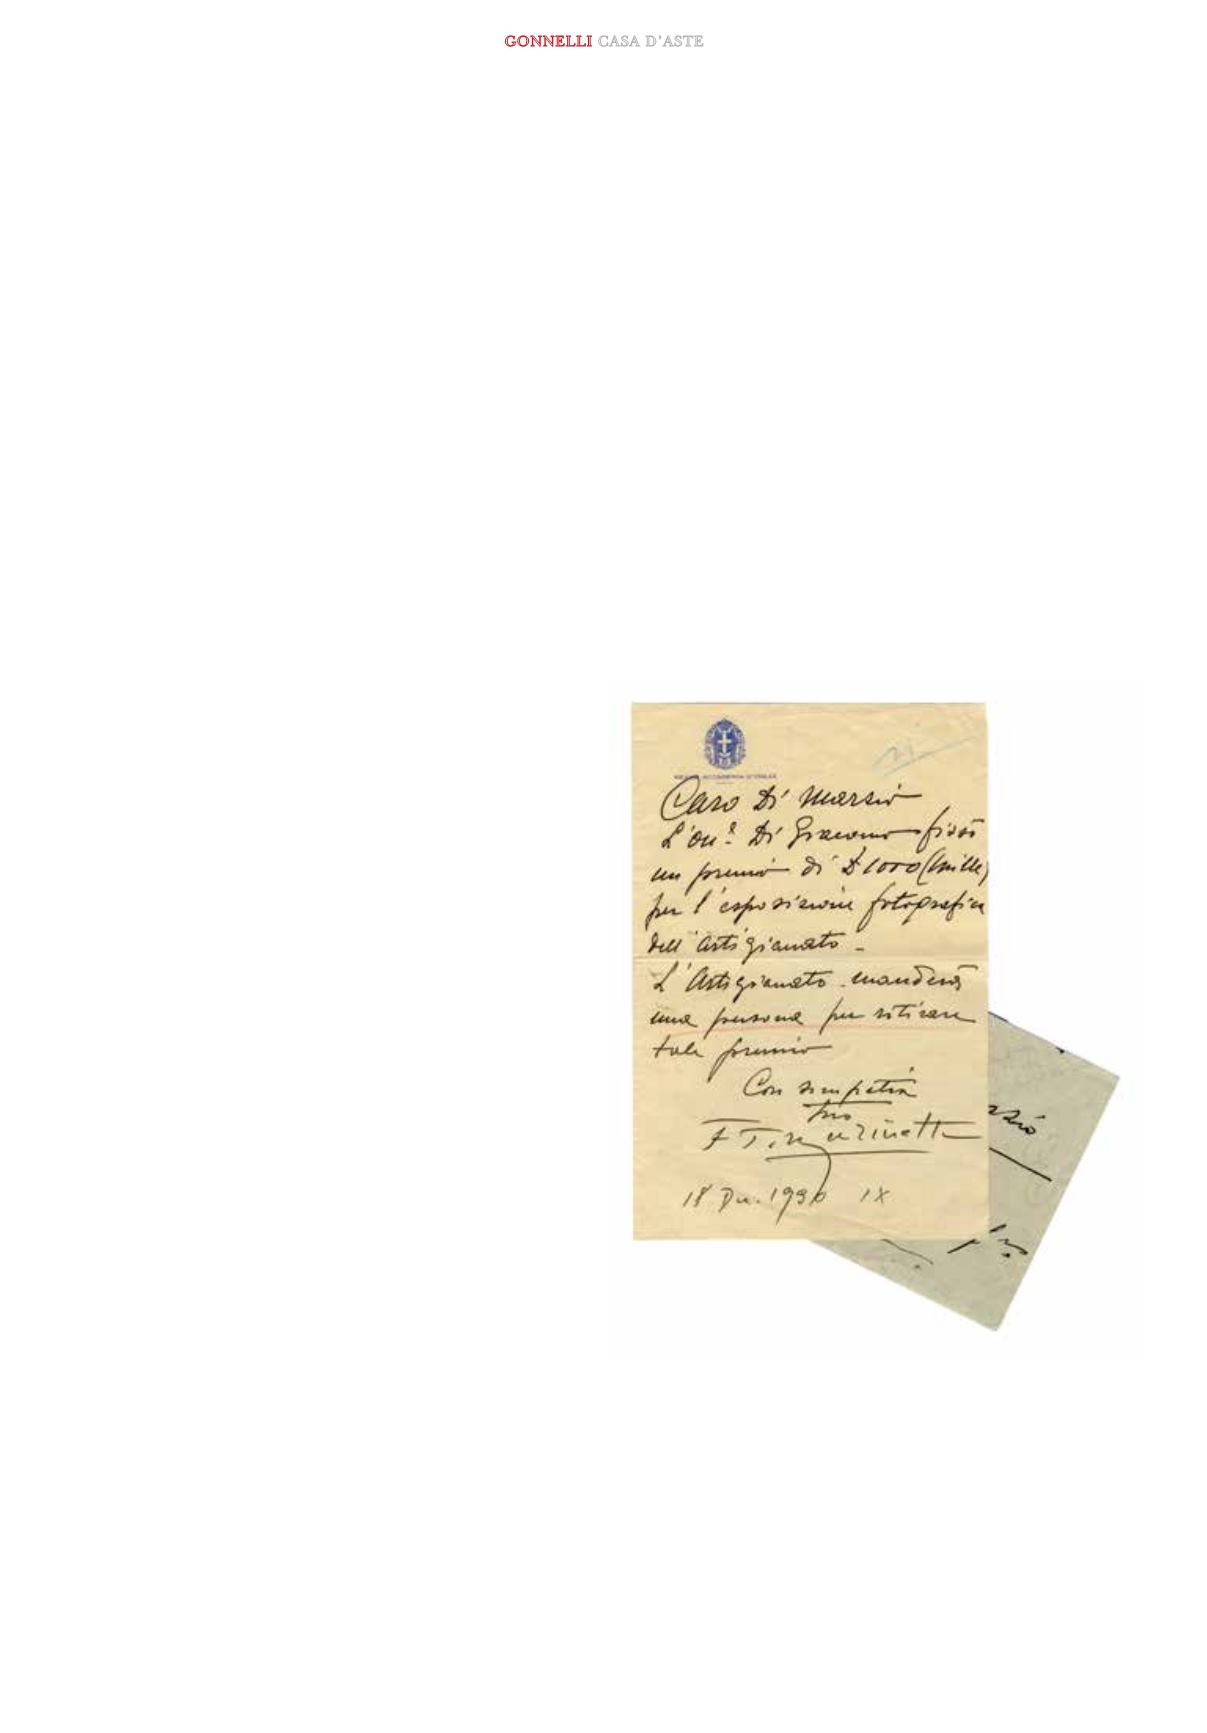 GONNELLI CASA D'ASTE
REALE ACCADEMIA D'ITALIA
21
Caro Di Marzio
L'on. Di Giacomo fissò
un premio di £ 1000 (mille)
per l'esposizione fotografica
dell'Artigianato -
L'Artigianato manderà
una persona per ritirare
tale premio
Con simpatia
tuo
F T. Marinetti
18 Dic. 1930 IX